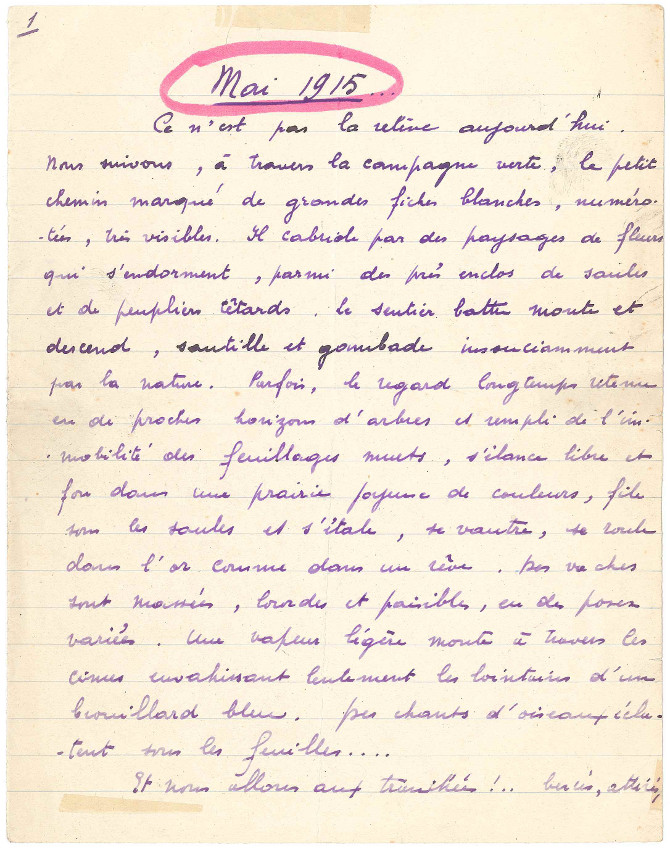 1
Mai 1915...
Ce n'est pas la relève aujourd'hui.
Nous suivons, à travers la campagne verte, le petit
chemin marqué de grandes fiches blanches, numéro-
-tées, très visibles. Il cabriole par des paysages de fleurs
qui s'endorment, parmi des prés enclos de saules
et de peupliers têtards. le sentier battu monte et
descend, sautille et gambade insouciamment
par la nature. Parfois, le regard longtemps retenu
en de proches horizons d'arbres et rempli de l'im-
-mobilité des feuillages muets, s'élance libre et
fou dans une prairie joyeuse de couleurs, file
sous les saules et s'étale, se vautre, se roule
dans l'or comme dans un rêve. Des vaches
sont massées, lourdes et paisibles, en des poses
variées. Une vapeur légère monte à travers les
cimes envahissant lentement les lointains d'un
brouillard bleu. Des chants d'oiseaux écla-
-tent sous les feuilles....
Et nous allons aux tranchées!.. bercés, attirés,